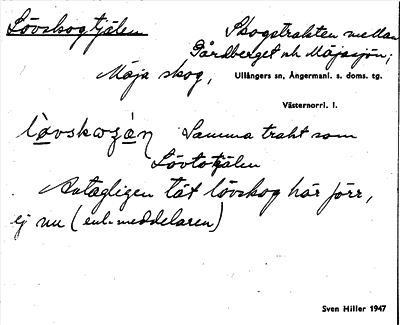 Lövskogtjälen
Skogstrakten mellan
Gårdberget och Mäjasjön;
Mäja skog, Ullångers sn, Ångermanl. s. doms. tg.
Västernorrl. l.
Samma trakt som
Lövtotjälen
Antagligen tät lövskog här förr,
ej nu (enl. meddelaren)
Sven Hiller 1947